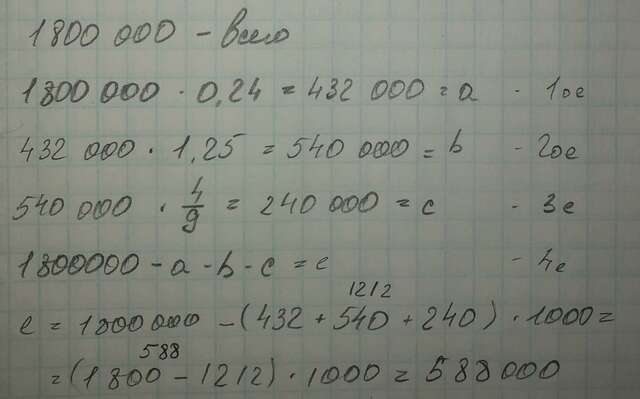 1800 000 - Всего
1800 000 · 0,24 = 432 000 = a - 1ое
432 000 · 1,25 = 540 000 = b - 2ое
540 000 · 4/9 = 240 000 = c - 3е
1800000 - a - b - c = e - 4е
1212
e = 1800 000 - (432 + 540 + 240) · 1000 =
588
= (1800 - 1212) · 1000 = 588000